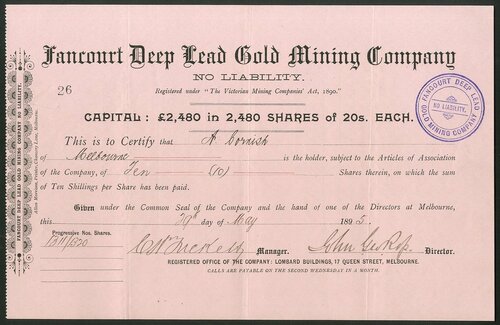 Fancourt Deep Lead Gold Mining Company
NO LIABILITY.
26
Registered under "The Victorian Mining Companies' Act, 1890."
CAPITAL: £2,480 in 2,480 SHARES of 20s. EACH.
FANCOURT DEEP LEAD
NO LIABILITY.
GOLD MINING COMPANY
This is to Certify that A. Cornish
of Melbourne is the holder, subject to the Articles of Association
of the Company, of Ten (10) Shares therein, on which the sum
of Ten Shillings per Share has been paid.
Given under the Common Seal of the Company and the hand of one of the Directors at Melbourne,
this 29th day of May 1895.
Progressive Nos. Shares.
Manager.
Director.
REGISTERED OFFICE OF THE COMPANY: LOMBARD BUILDINGS, 17 QUEEN STREET, MELBOURNE.
CALLS ARE PAYABLE ON THE SECOND WEDNESDAY IN A MONTH.
FANCOURT DEEP LEAD GOLD MINING COMPANY NO LIABILITY.